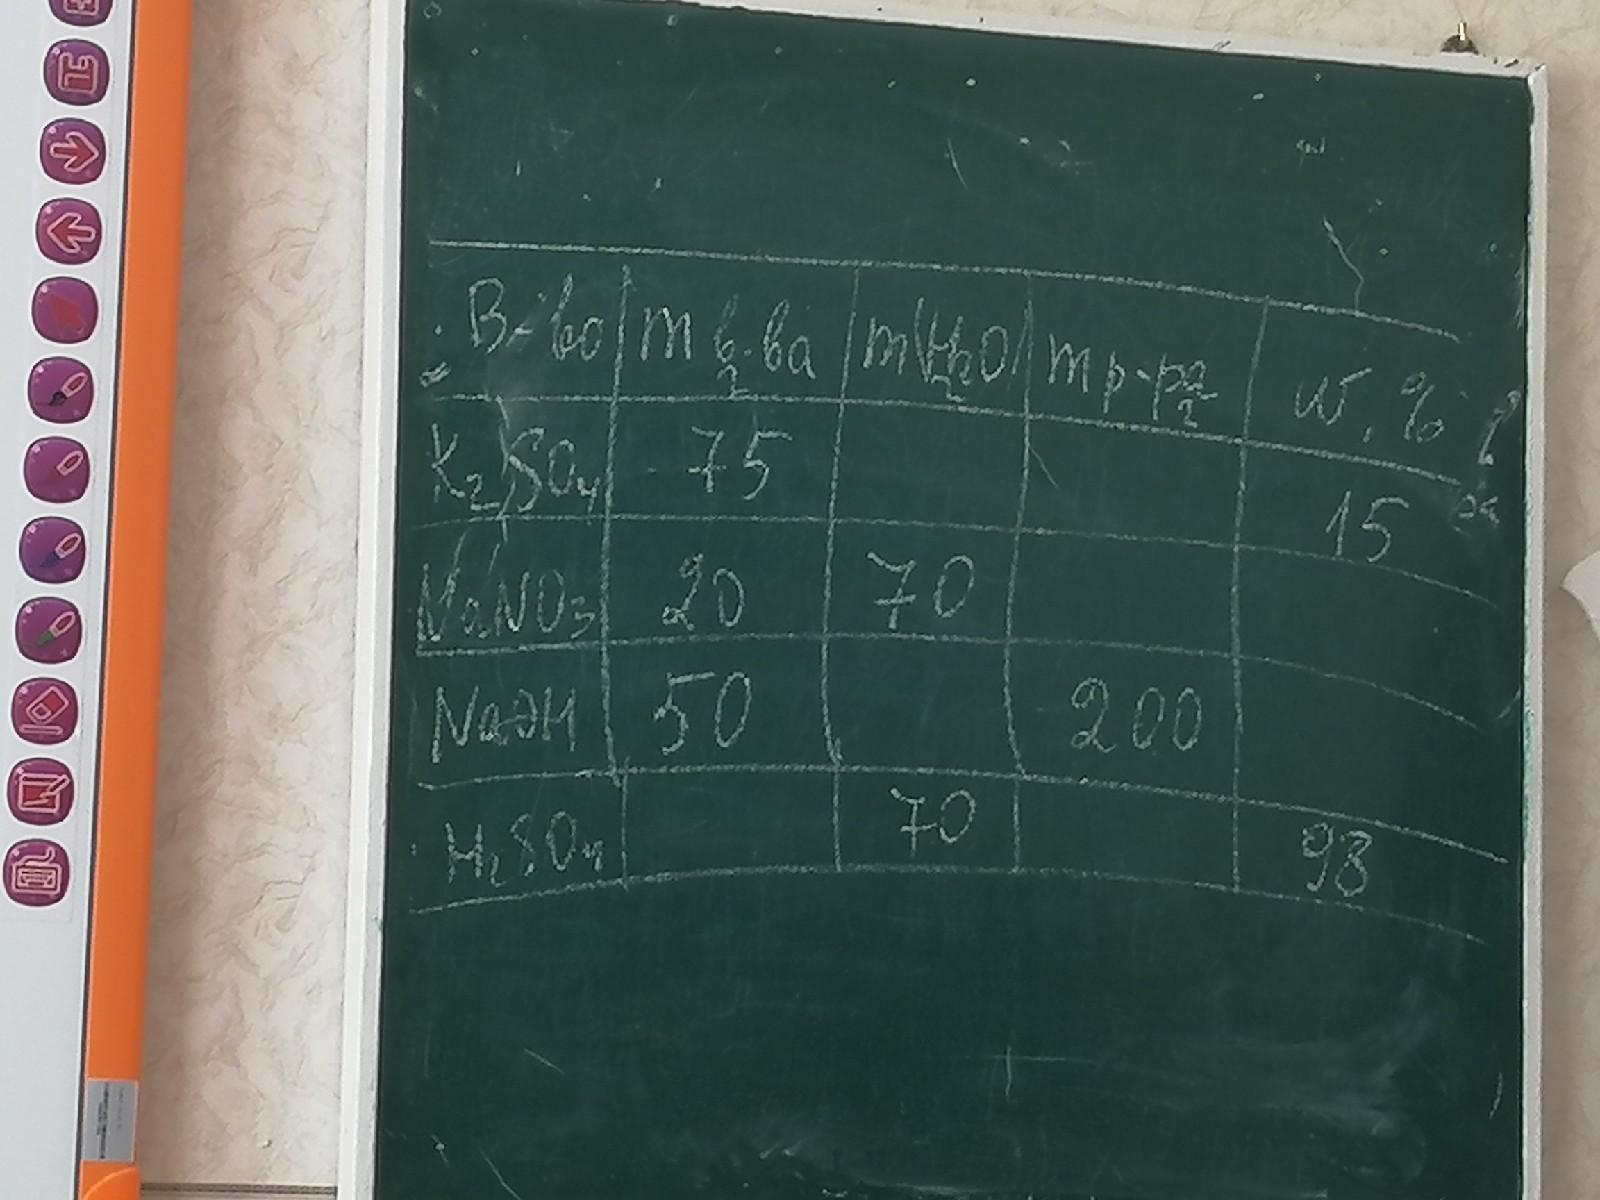 В-во m в-ва г m(H2O) г m р-ра г w, %
K2SO4 75 15
NaNO3 20 70
NaOH 50 200
H2SO4 70 98